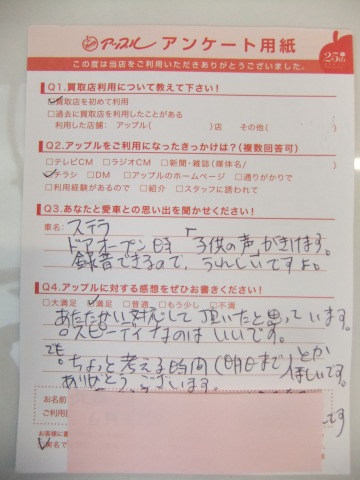 アップル アンケート用紙
25th
この度は当店をご利用いただきありがとうございました。
Q1.買取店利用について教えて下さい!
☑買取店を初めて利用
□過去に買取店を利用したことがある
利用した店舗: アップル( )店 その他( )
Q2.アップルをご利用になったきっかけは?(複数回答可)
□テレビCM □ラジオCM □新聞・雑誌(媒体名/ )
☑チラシ □DM □アップルのホームページ □通りがかりで
□利用経験があるので □紹介 □スタッフに誘われて
Q3.あなたと愛車との思い出を聞かせください!
車名: ステラ
ドアオープン時「子供の声がきけます。
録音できるので、うれしいですよ。
Q4.アップルに対する感想をぜひお書きください!
□大満足 ☑満足 □普通 □もう少し □不満
あたたかい対応して頂いたと思っています。
○スピーディなのはいいです。
でも。ちょっと考える時間(明日まで)とか
ほしいです。
ありがとうございます。
お名前
ご利用
です
お客様に